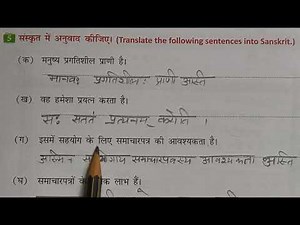 5 संस्कृत में अनुवाद कीजिए। (Translate the following sentences into Sanskrit.)
(क) मनुष्य प्रगतिशील प्राणी है।
मानवः प्रगतिशीलः प्राणी अस्ति
(ख) वह हमेशा प्रयत्न करता है।
सः सततं प्रयत्नम् करोति ।
(ग) इसमें सहयोग के लिए समाचारपत्र की आवश्यकता है।
समाचारपत्रस्य आवश्यकता अस्ति
(घ) समाचारपत्रों के लाभ हैं।